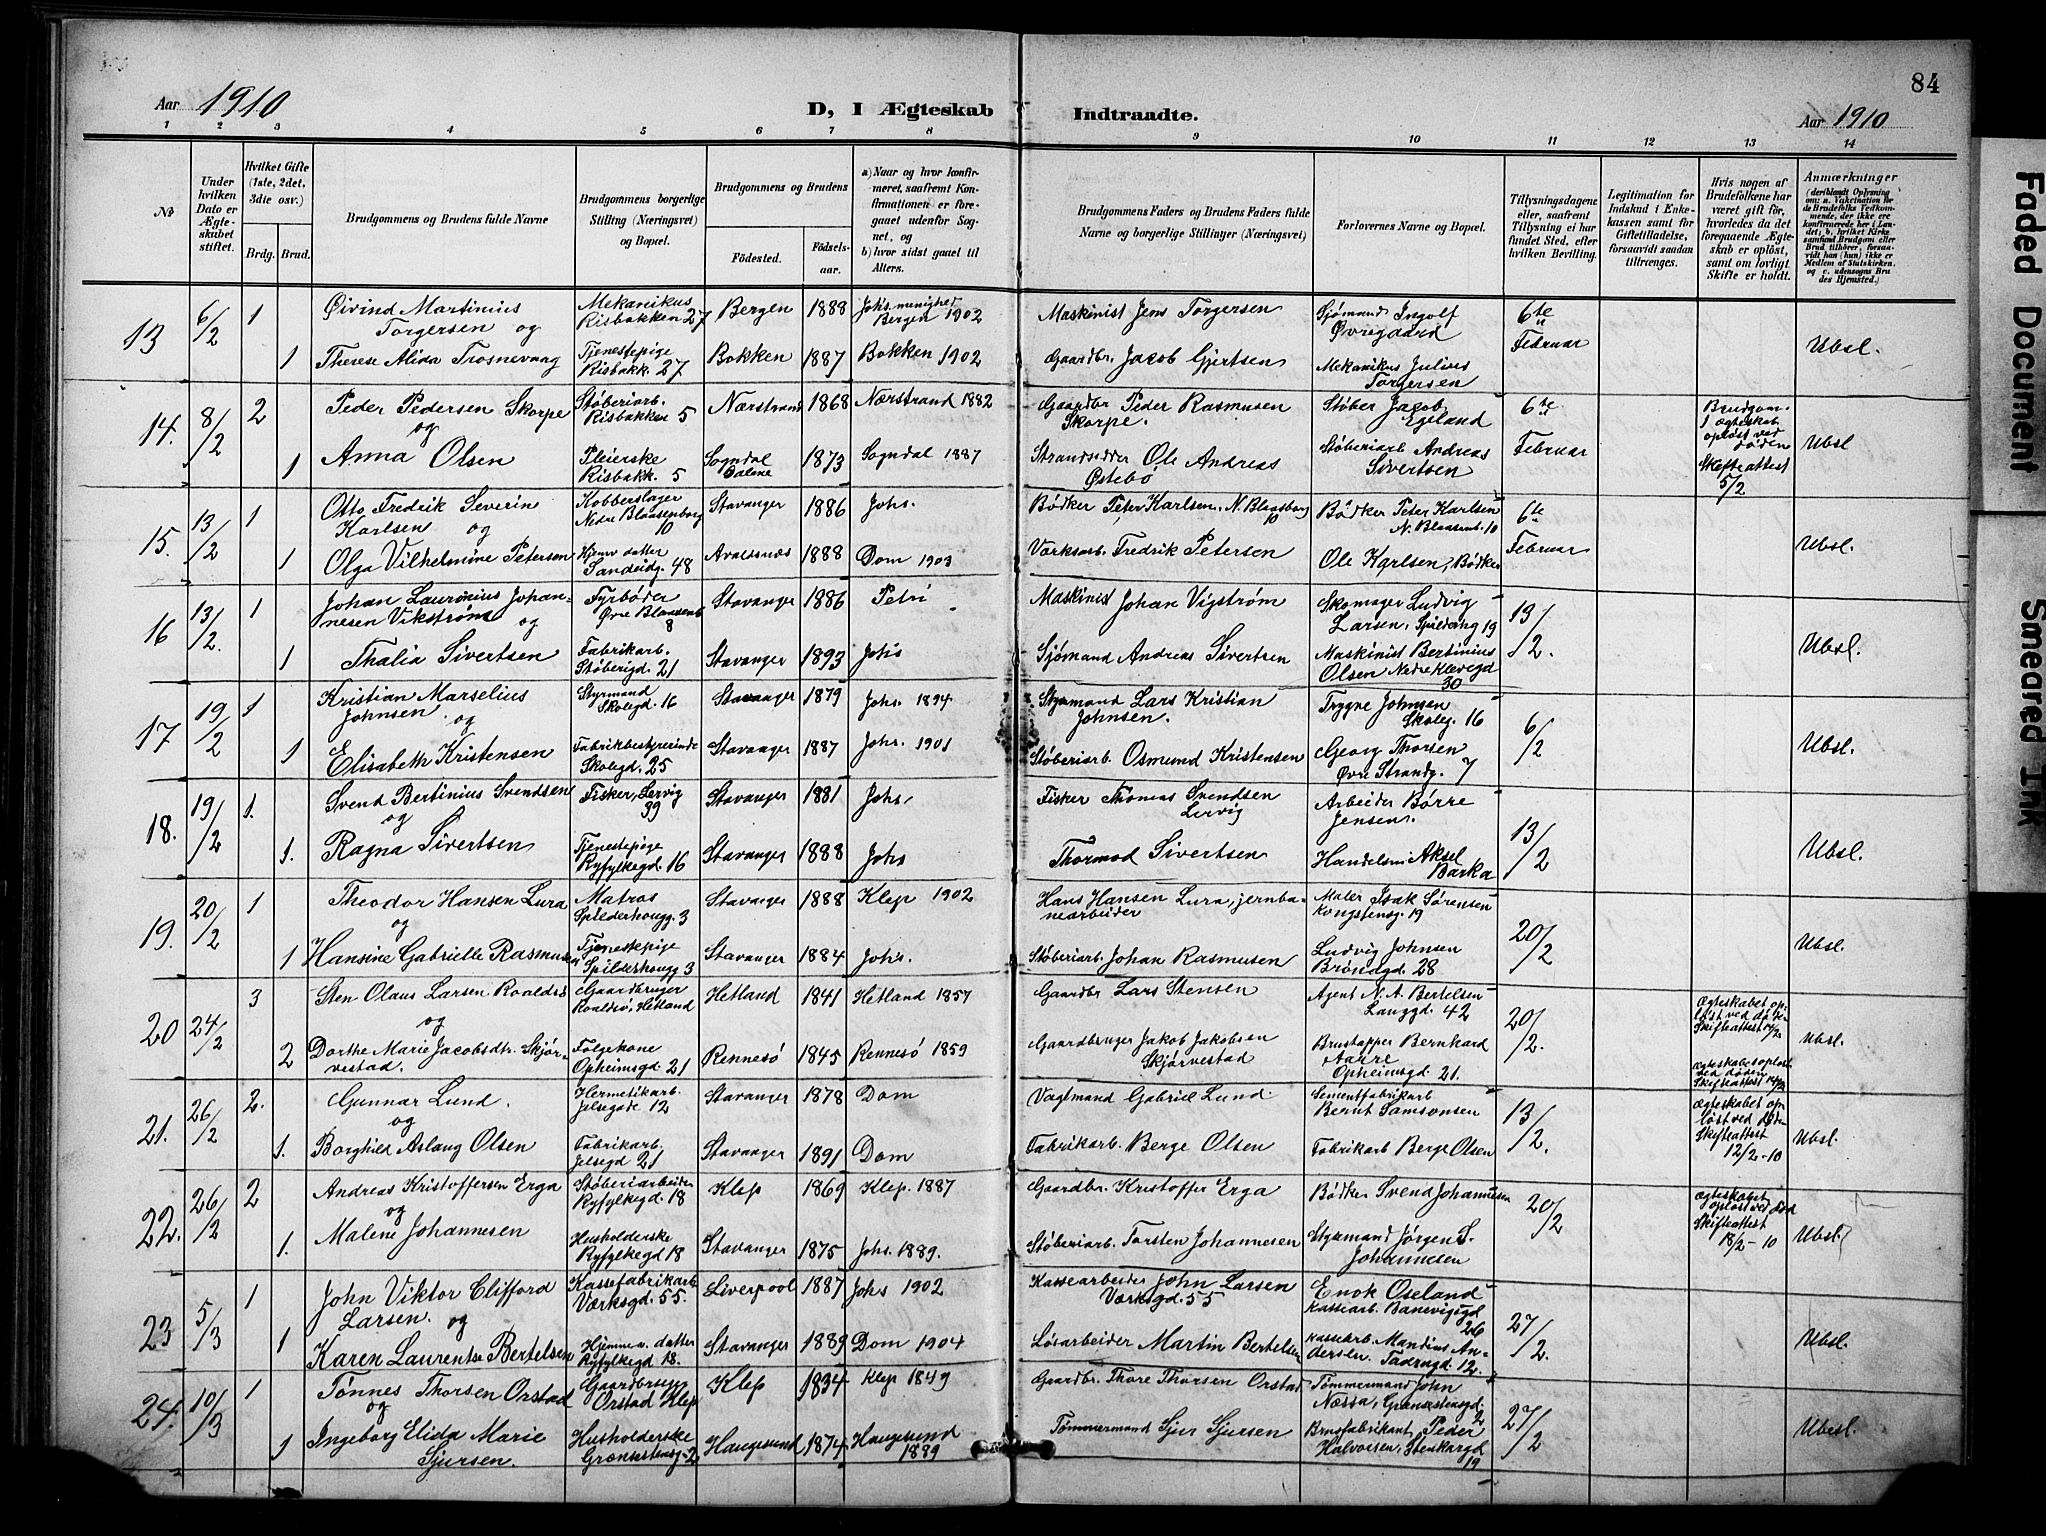 84
Aar 1910
D, I Ægteskab Indtraadte.
Aar 1910
1 2 3 4 5 6 7 8 9 10 11 12 13 14
№
Under hvilken Dato er Ægteskabet stiftet.
Hvilket Gifte (1ste, 2det, 3die osv.)
Brdg. Brud.
Brudgommens og Brudens fulde Navne
Brudgommens borgerlige Stilling (Næringsvei) og Bopæl.
Brudgommens og Brudens
Fødested. Fødselsaar.
a) Naar og hvor konfirmeret, saafremt Konfirmationen er foregaaet udenfor Sognet, og
b) hvor sidst gaaet til Alters.
Brudgommens Faders og Brudens Faders fulde Navne og borgerlige Stillinger (Næringsvei)
Forlovernes Navne og Bopæl.
Tillysningsdagene eller, saafremt Tillysning ei har fundet Sted, efter hvilken Bevilling.
Legitimation for Indskud i Enkekassen samt for Giftetilladelse, forsaavidt saadan tiltrænges.
Hvis nogen af Brudefolkene har været gift før, hvorledes da det foregaaende Ægteskab er opløst, samt om lovligt Skifte er holdt.
Anmærkninger (deriblandt Oplysning om: a. Vakcination for de Brudefolks Vedkommende, der ikke ere konfirmerede her i Landet; b. hvilket Kirkesamfund Brudgom eller Brud tilhører, forsaavidt han (hun) ikke er Medlem af Statskirken, og c. udensogns Brudes Hjemsted.)
13 6/2 1 Øivind Martinius Torgersen og Mekanikus Risbakken 27 Bergen 1888 Johs. menighed Bergen 1902 Maskinist Jens Torgersen Sjømand Ingolf Øvregaard 6te Februar Ubsl.
1 Therese Alida Trosnevaag Tjenestepige Risbakk. 27 Bokken 1887 Bokken 1902 Gaardbr. Jacob Gjertsen Mekanikus Julius Torgersen
14. 8/2 2 Peder Pedersen Skorpe og Støberiarb. Risbakken 5 Nærstrand 1868 Nærstrand 1882 Gaardbr Peder Rasmusen Skorpe. Støber Jacob Egeland 6te Februar Brudgom. 1 ægteskab opløst ved døden Skifteattest 5/2 Ubsl
1 Anna Olsen Pleierske Risbakk. 5 Sogndal Dalene 1873 Sogndal 1887 Strandsidder Ole Andreas Østebø Støberiarb Andreas Sivertsen
15. 13/2 1 Otto Fredrik Severin Karlsen og Kobberslager Nedre Blaasenborg 10 Stavanger 1886 Johs. Bødker Peter Karlsen, N. Blaasborg 10 Bødker Peter Karlsen N. Blaasenb. 10 6te Februar Ubsl.
1 Olga Vilhelmine Petersen Hjemv datter Sandeidg. 48 Avaldsnes 1888 Dom 1903 Værksarb. Fredrik Petersen Ole Karlsen, Bødker
16 13/2. 1 Johan Laurinius Johannesen Vikstrøm og Fyrbøder Øvre Blaasenb 8 Stavanger 1886 Petri Maskinist Johan Vigstrøm Skomager Ludvig Larsen, Spilderhg 19 13/2. Ubsl.
1 Thalia Sivertsen Fabrikarb. Støberigd. 21 Stavanger 1893 Johs Sjømand Andreas Sivertsen Maskinist Bertinius Olsen Nedre Klevegd 30
17 19/2 1 Kristian Marselius Johnsen og Styrmand Skolegd. 16 Stavanger 1879 Johs. 1894. Styrmand Lars Kristian Johnsen. Trygve Johnsen Skoleg. 16 6/2 Ubsl.
1 Elisabeth Kristensen Fabrikbestyrerinde Skolegd. 25 Stavanger 1887 Johs. 1901 Støberiarb. Osmund Kristensen Georg Thorsen Øvre Strandg. 7
18. 19/2 1. Svend Bertinius Svendsen og Fisker, Lervig 39 Stavanger 1881 Johs. Fisker Thomas Svendsen Lervig Arbeider Børre Jensen. 13/2 Ubsl.
1. Ragna Sivertsen Tjenestepige Ryfylkegd. 16 Stavanger 1888 Johs Thormod Sivertsen Handelsm Aksel Barka
19. 20/2 1 Theodor Hansen Lura og Matros Spilderhougg. 3 Stavanger 1888 Klep 1902 Hans Hansen Lura, jernbanearbeider Maler Isak Sørensen Kongstensg. 19 20/2 Ubsl.
1 Hansine Gabrielle Rasmusen Tjenestepige Spilderhougg 3 Stavanger 1884 Johs. Støberiarb. Johan Rasmusen Ludvig Johnsen Brøndgd. 28
20 24/2 3 Sten Olaus Larsen Roaldsø og Gaardbruger Roaldsø, Hetland Hetland 1841 Hetland 1857 Gaardbr Lars Stensen Agent N. A. Bertelsen Langgd. 42 20/2. Ægteskabet opløst ved døden Skifteattest 14/2 Ubsl.
2 Dorthe Marie Jacobsdtr. Skjørvestad. Følgekone Opheimsgd. 21 Rennesø 1845 Rennesø 1859 Gaardbruger Jakob Jakobsen Skjørvestad Brustapper Bernhard Aarre Opheimsgd. 21. Ægteskabet opløst ved døden Skifteattest 14/2
21. 26/2 2. Gunnar Lund. og Hermetikarb. Jelsegate 12 Stavanger 1878 Dom Vagtmand Gabriel Lund. Sementfabrikarb Bernt Samsonsen 13/2. Ægteskabet opløst ved døden Skifteattest 12/2-10 Ubsl.
1. Borghild Aslaug Olsen Fabrikarb. Jelsegd 21 Stavanger 1891 Dom Fabrikarb. Berge Olsen Fabrikarb Berge Olsen
22. 26/2 2 Andreas Kristoffersen Erga og Støberiarbeider Ryfylkegd. 18 Klep 1869 Klep. 1887 Gaardbr. Kristoffer Erga Bødker Svend Johannesen 20/2 Ægteskabet opløst ved død Skifteattest 18/2-10 Ubsl.
1. Malene Johannesen Husholderske Ryfylkegd 18 Stavanger 1875 Johs. 1889. Støberiarb. Torsten Johannesen Styrmand Jørgen S. Johannesen
23 5/3 1 John Viktor Clifford Larsen. og Kassefabrikarb. Værksgd. 55. Liverpool 1887 Johs 1902 Kassearbeider John Larsen Værksgd. 55 Enok Oseland kassearb. Banevigsgd 26 27/2. Ubsl.
1 Karen Laurentse Bertelsen Hjemmev. datter Ryfylkegd 18. Stavanger 1889 Dom 1904 Løsarbeider Martin Bertelsen kassearb. Mandius Andersen. 12.
24. 10/3 1 Tønnes Thorsen Orstad og Gaardbruger Orstad Klep Klep 1834 Klep 1849 Gaardbr. Thore Thorsen Orstad Tømmermand John Næssa, Grænsestensgd. 2 27/2 Ubsl.
1 Ingeborg Elida Marie Sjursen. Husholderske Grænsestensg. 2 Haugesund 1874 Haugesund 1889 Tømmermand Sjur Sjursen Brusfabrikant Peder Halvorsen, Stenkargd 19
Faded Document
Smeared Ink